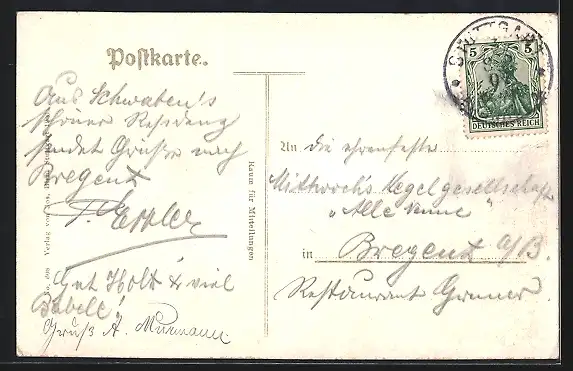 Postkarte.
STUTTGART
5 5
DEUTSCHES REICH
Aus Schwaben's
schöner Residenz
sendet Grüsse nach
Bregenz
P. Eppler
Gut Holz & viel
Babele!
Gruß A. Murmann
Raum für Mitteilungen
Verlag von
An die ehrenfeste
Mittwoch's Kegelgesellschaft
„Alle neune"
in Bregenz a/B.
Restaurant